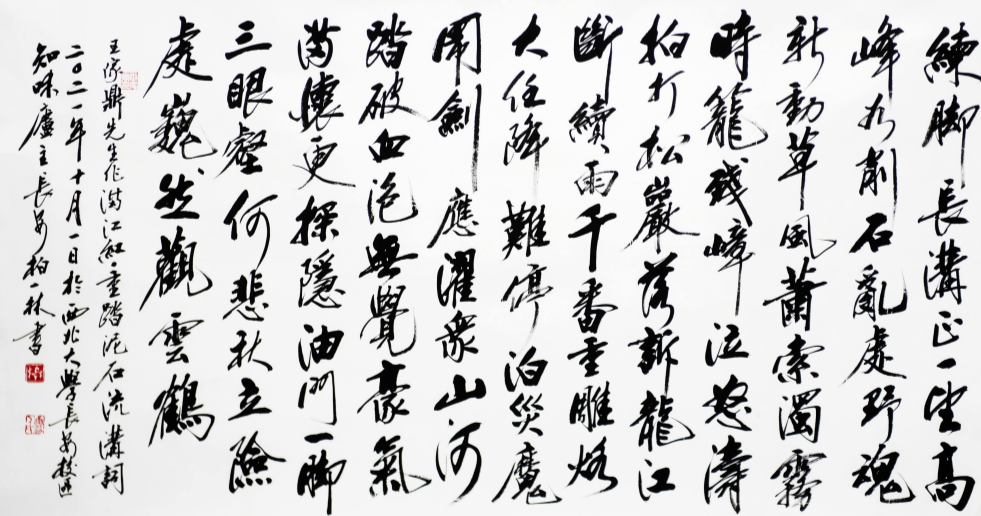 練脚長溝正一望高
峰如削石亂處野魂
新動草風蕭索濁霧
時籠殘嶂泣怒濤
拍打松巖落訴龍江
斷續雨千番重雕烙
大任降難停泊災魔
鬧劍應濯衆山河
踏破血泡無覺豪氣
滿懷更探隱油門一脚
三眼壑何悲秋立險
處巍然觀雲鶴
王家鼎先生作滿江紅重踏泥石流溝詞
二〇二一年十月一日於西北大學長安校區
知味廬主長安柏一林書